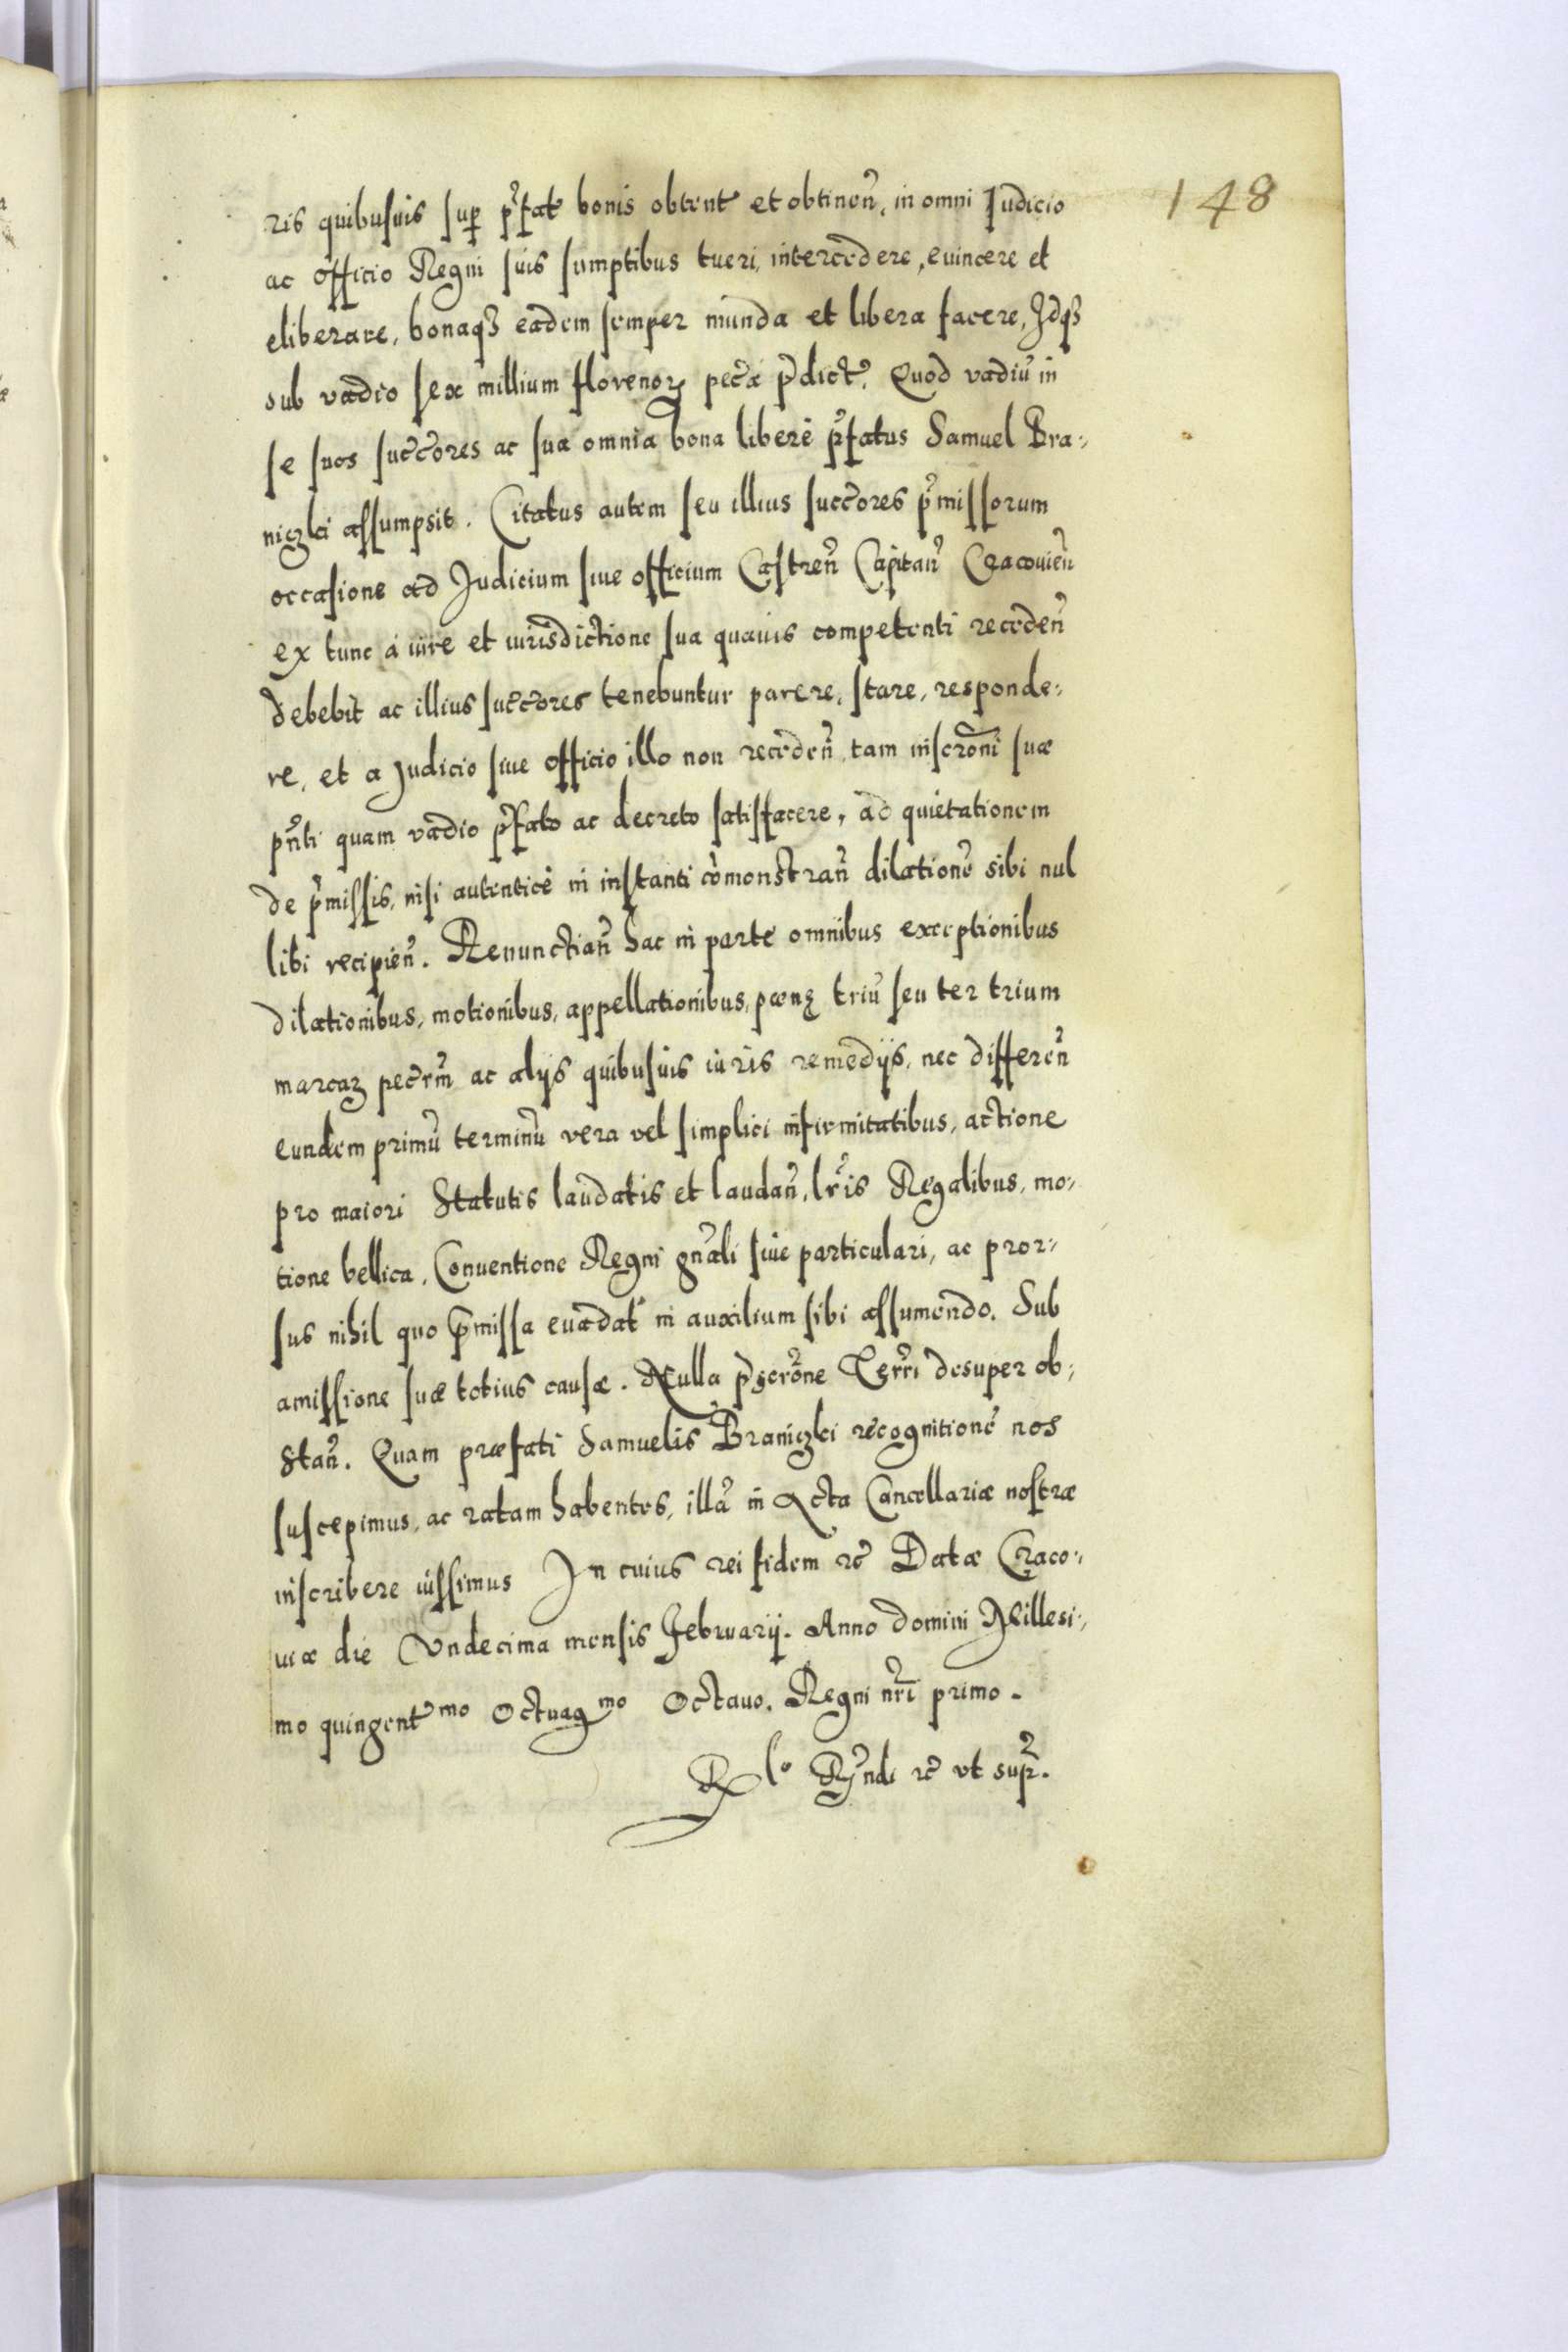 148
ris quibusuis sup p̃fat bonis obtent et obtinen̄, in omni Iudicio
ac officio Regni suis sumptibus tueri, intercedere, euincere et
eliberare, bonaqʒ eadem semper munda et libera facere, Idqʒ
sub vadio sex millium florenoꝝ pec̃æ p̃dict. Quod vadiũ in
se suos succ̃ores ac sua omnia bona libere p̃fatus Samuel Bra-
niczki assumpsit. Citatus autem seu illius succ̃ores p̃missorum
occasione ad Judicium siue officium Castren̄ Capitan̄ Cracouien̄
ex tunc à iure et iurisdictione sua quauis competenti receden̄
debebit ac illius succ̃ores tenebuntur parere, stare, responde-
re, et a Judicio siue officio illo non receden̄ tam inscrõni suæ
pn̄ti quam vadio p̃fato ac decreto satisfacere, ad quietationem
de p̃missis, nisi autenticè in instanti cõmonstran̄ dilationẽ sibi nul
libi recipien̄. Renunctian̄ hac in parte omnibus exceptionibus
dilationibus, motionibus, appellationibus, pœnę triũ seu ter trium
marcaꝝ pec̃rm̃ ac alijs quibusuis iuris remedijs, nec differen̄
eundem primũ terminũ vera vel simplici infirmitatibus, actione
pro maiori Statutis laudatis et laudan̄, lr̃is Regalibus, mo-
tione bellica, Conuentione Regni gñali siue particulari, ac pror-
sus nihil quo p̃missa euadat in auxilium sibi assumendo. Sub
amissione suæ totius causæ. Nulla p̃scrõne Terrĩ desuper ob-
stan̄. Quam præfati Samuelis Braniczki recognitionẽ nos
suscepimus, ac ratam habentes, illã in Acta Cancellariæ nostræ
inscribere iussimus In cuius rei fidem ꝛc̃ Datæ Craco-
uiæ die Vndecima mensis Februarij. Anno domini Millesi-
mo quingentmo Octuagmo Octauo. Regni nr̃i primo.
Rlo Rñdi ꝛc̃ vt supr̃.